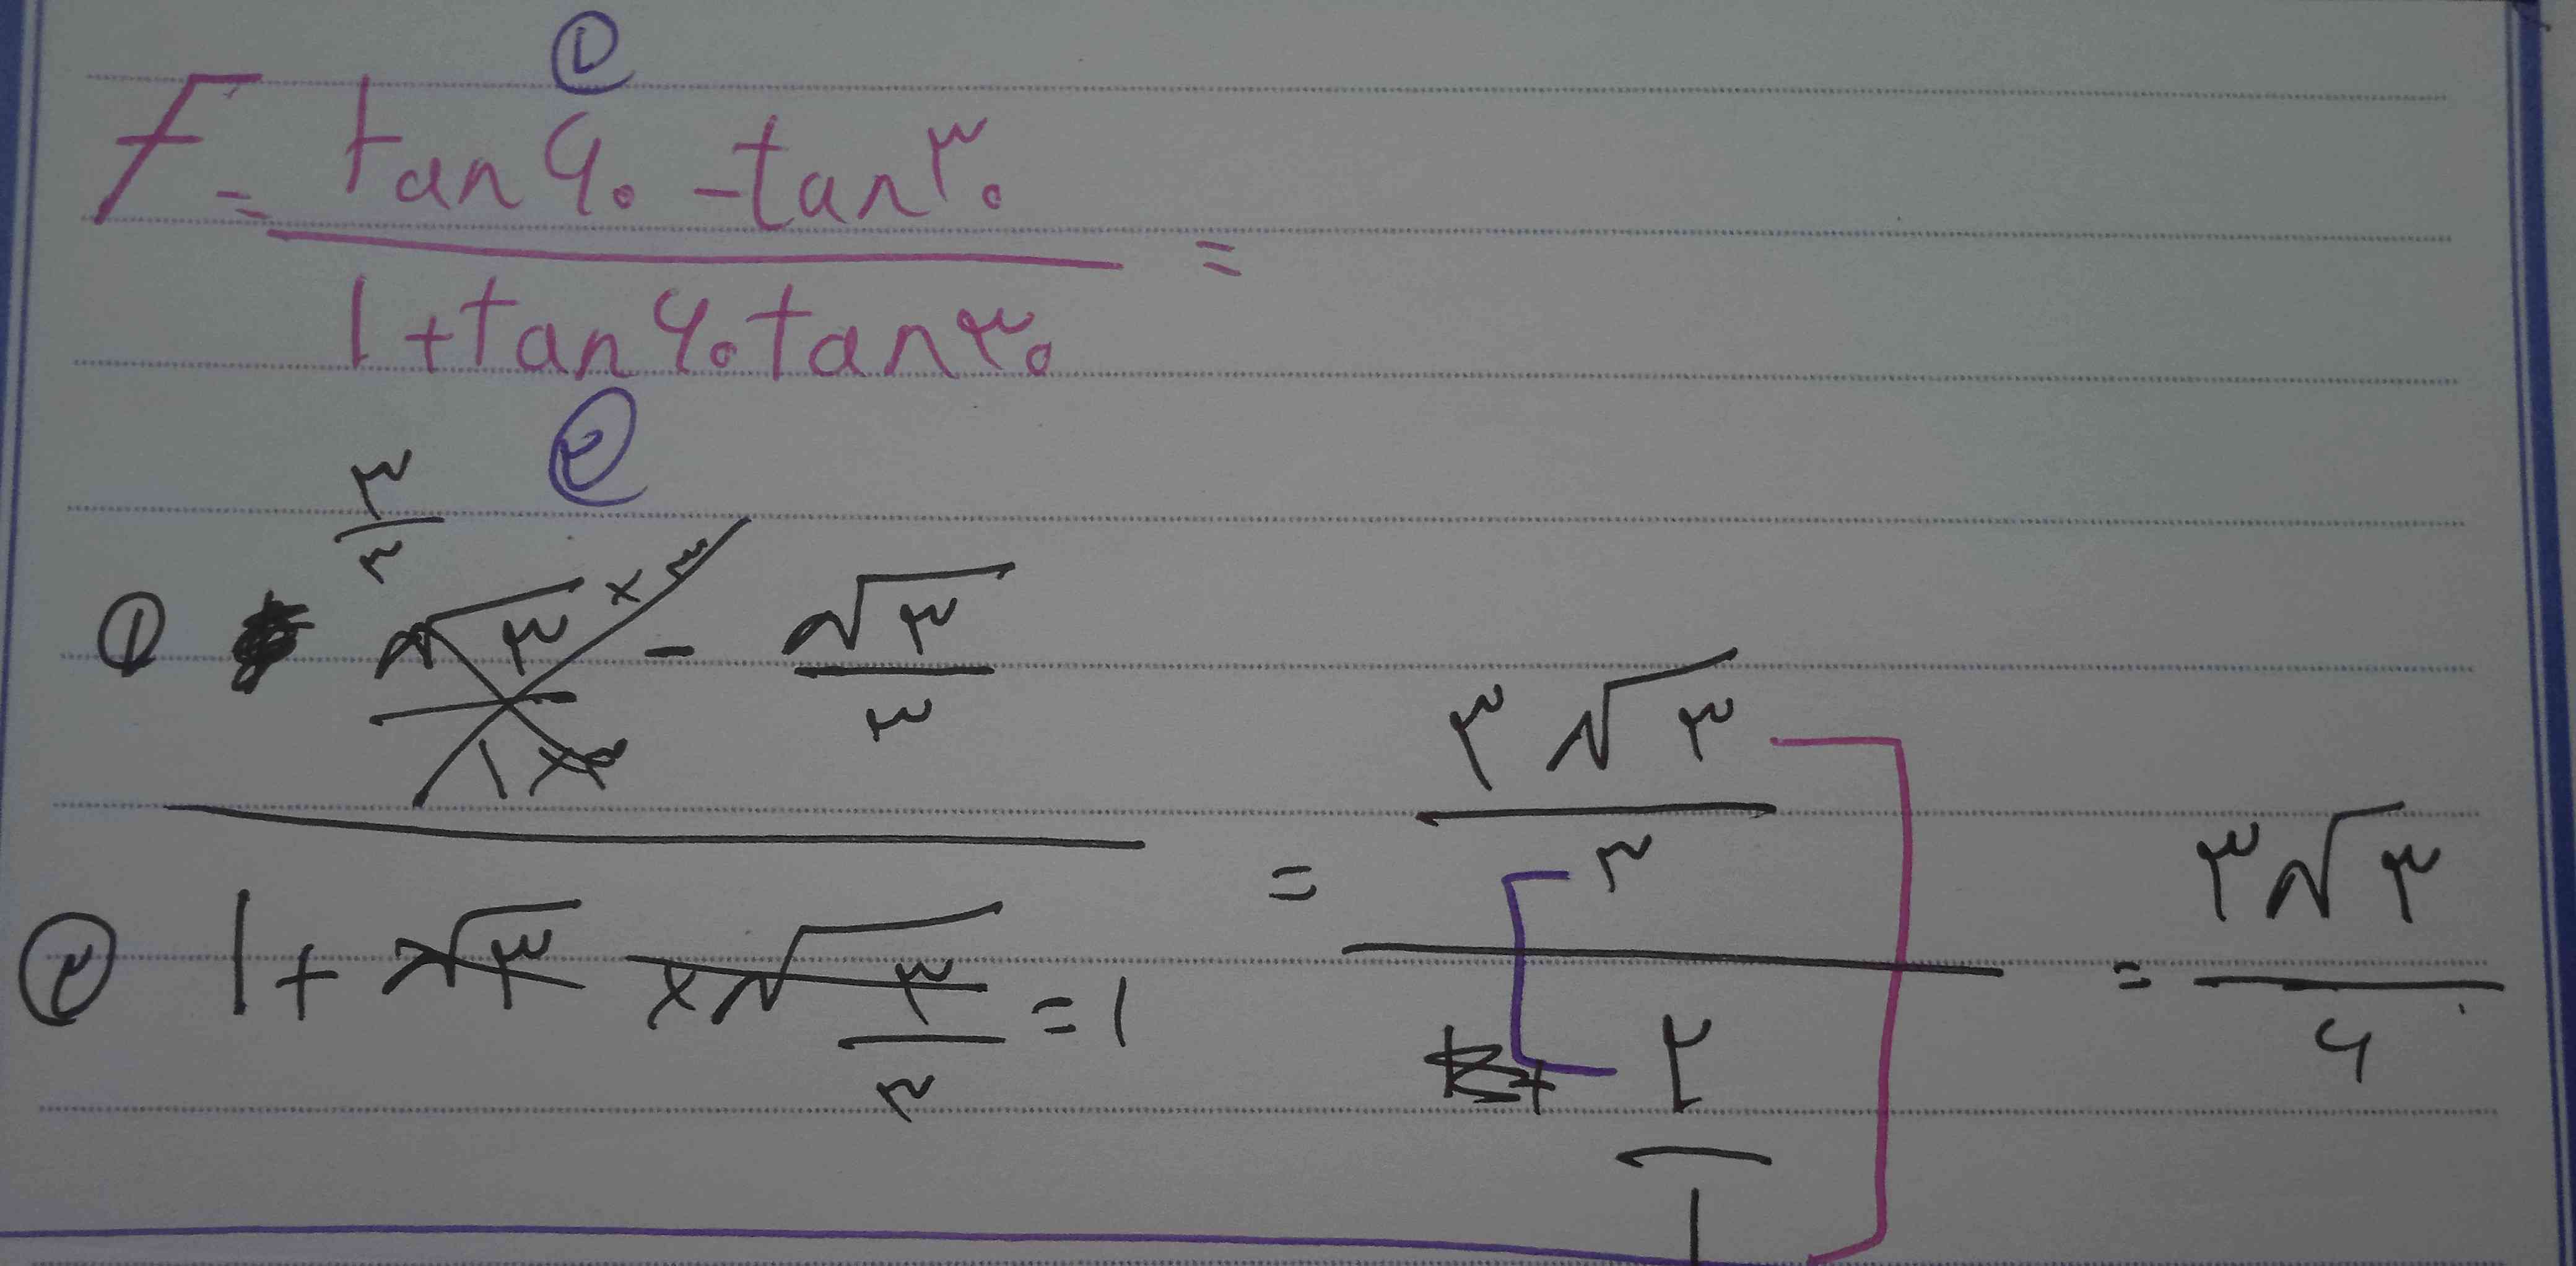 ①
F = tan ۶۰ - tan ۳۰ =
1 + tan ۶۰ tan ۳۰
②
۳
۳
① √۳ × ۳ - √۳
1 × ۳ ۳
② 1 + √۳ × √۳ = 1
۳
= ۳ √۳
۳
۲
1
= ۳ √۳
۶